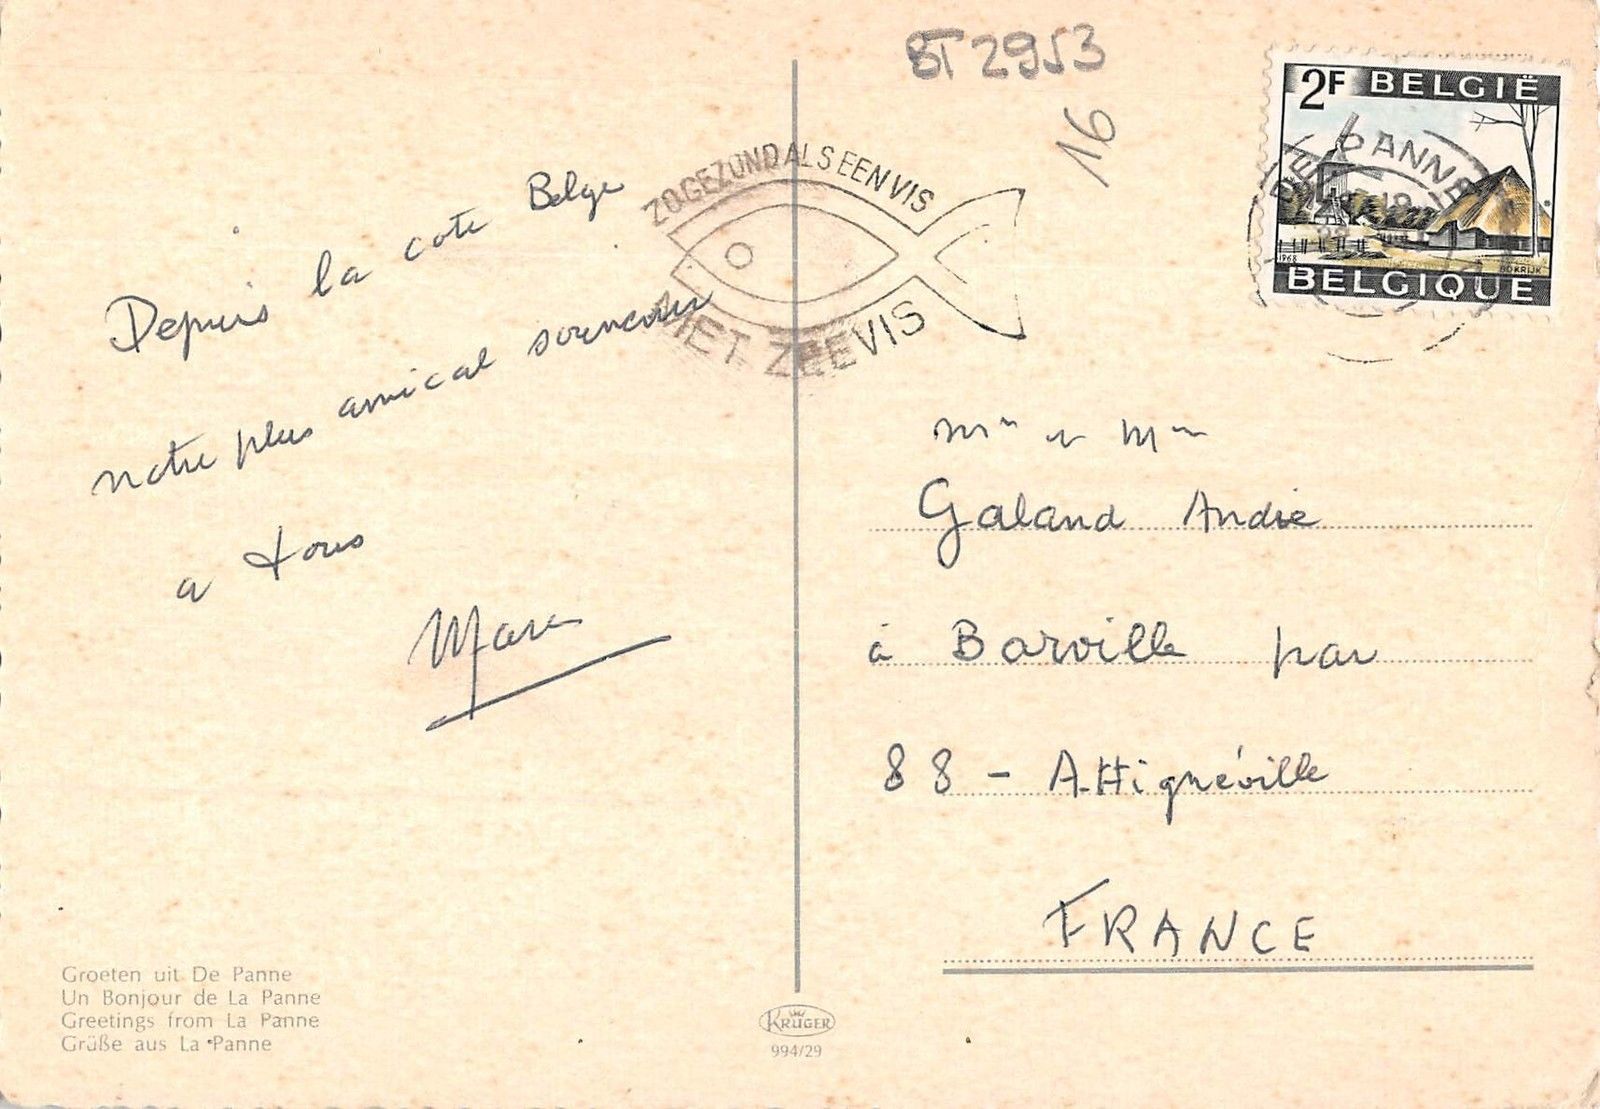 BT 2953
16
2F BELGIË
1968
BOKRIJK
BELGIQUE
DE PANNE
ZO GEZOND ALS EEN VIS
MET ZEEVIS
Depuis la cote Belge
notre plus amical
a tous
Galand André
à Barville par
88 - Attignéville
FRANCE
Groeten uit De Panne
Un Bonjour de La Panne
Greetings from La Panne
Grüße aus La Panne
KRÜGER
994/29